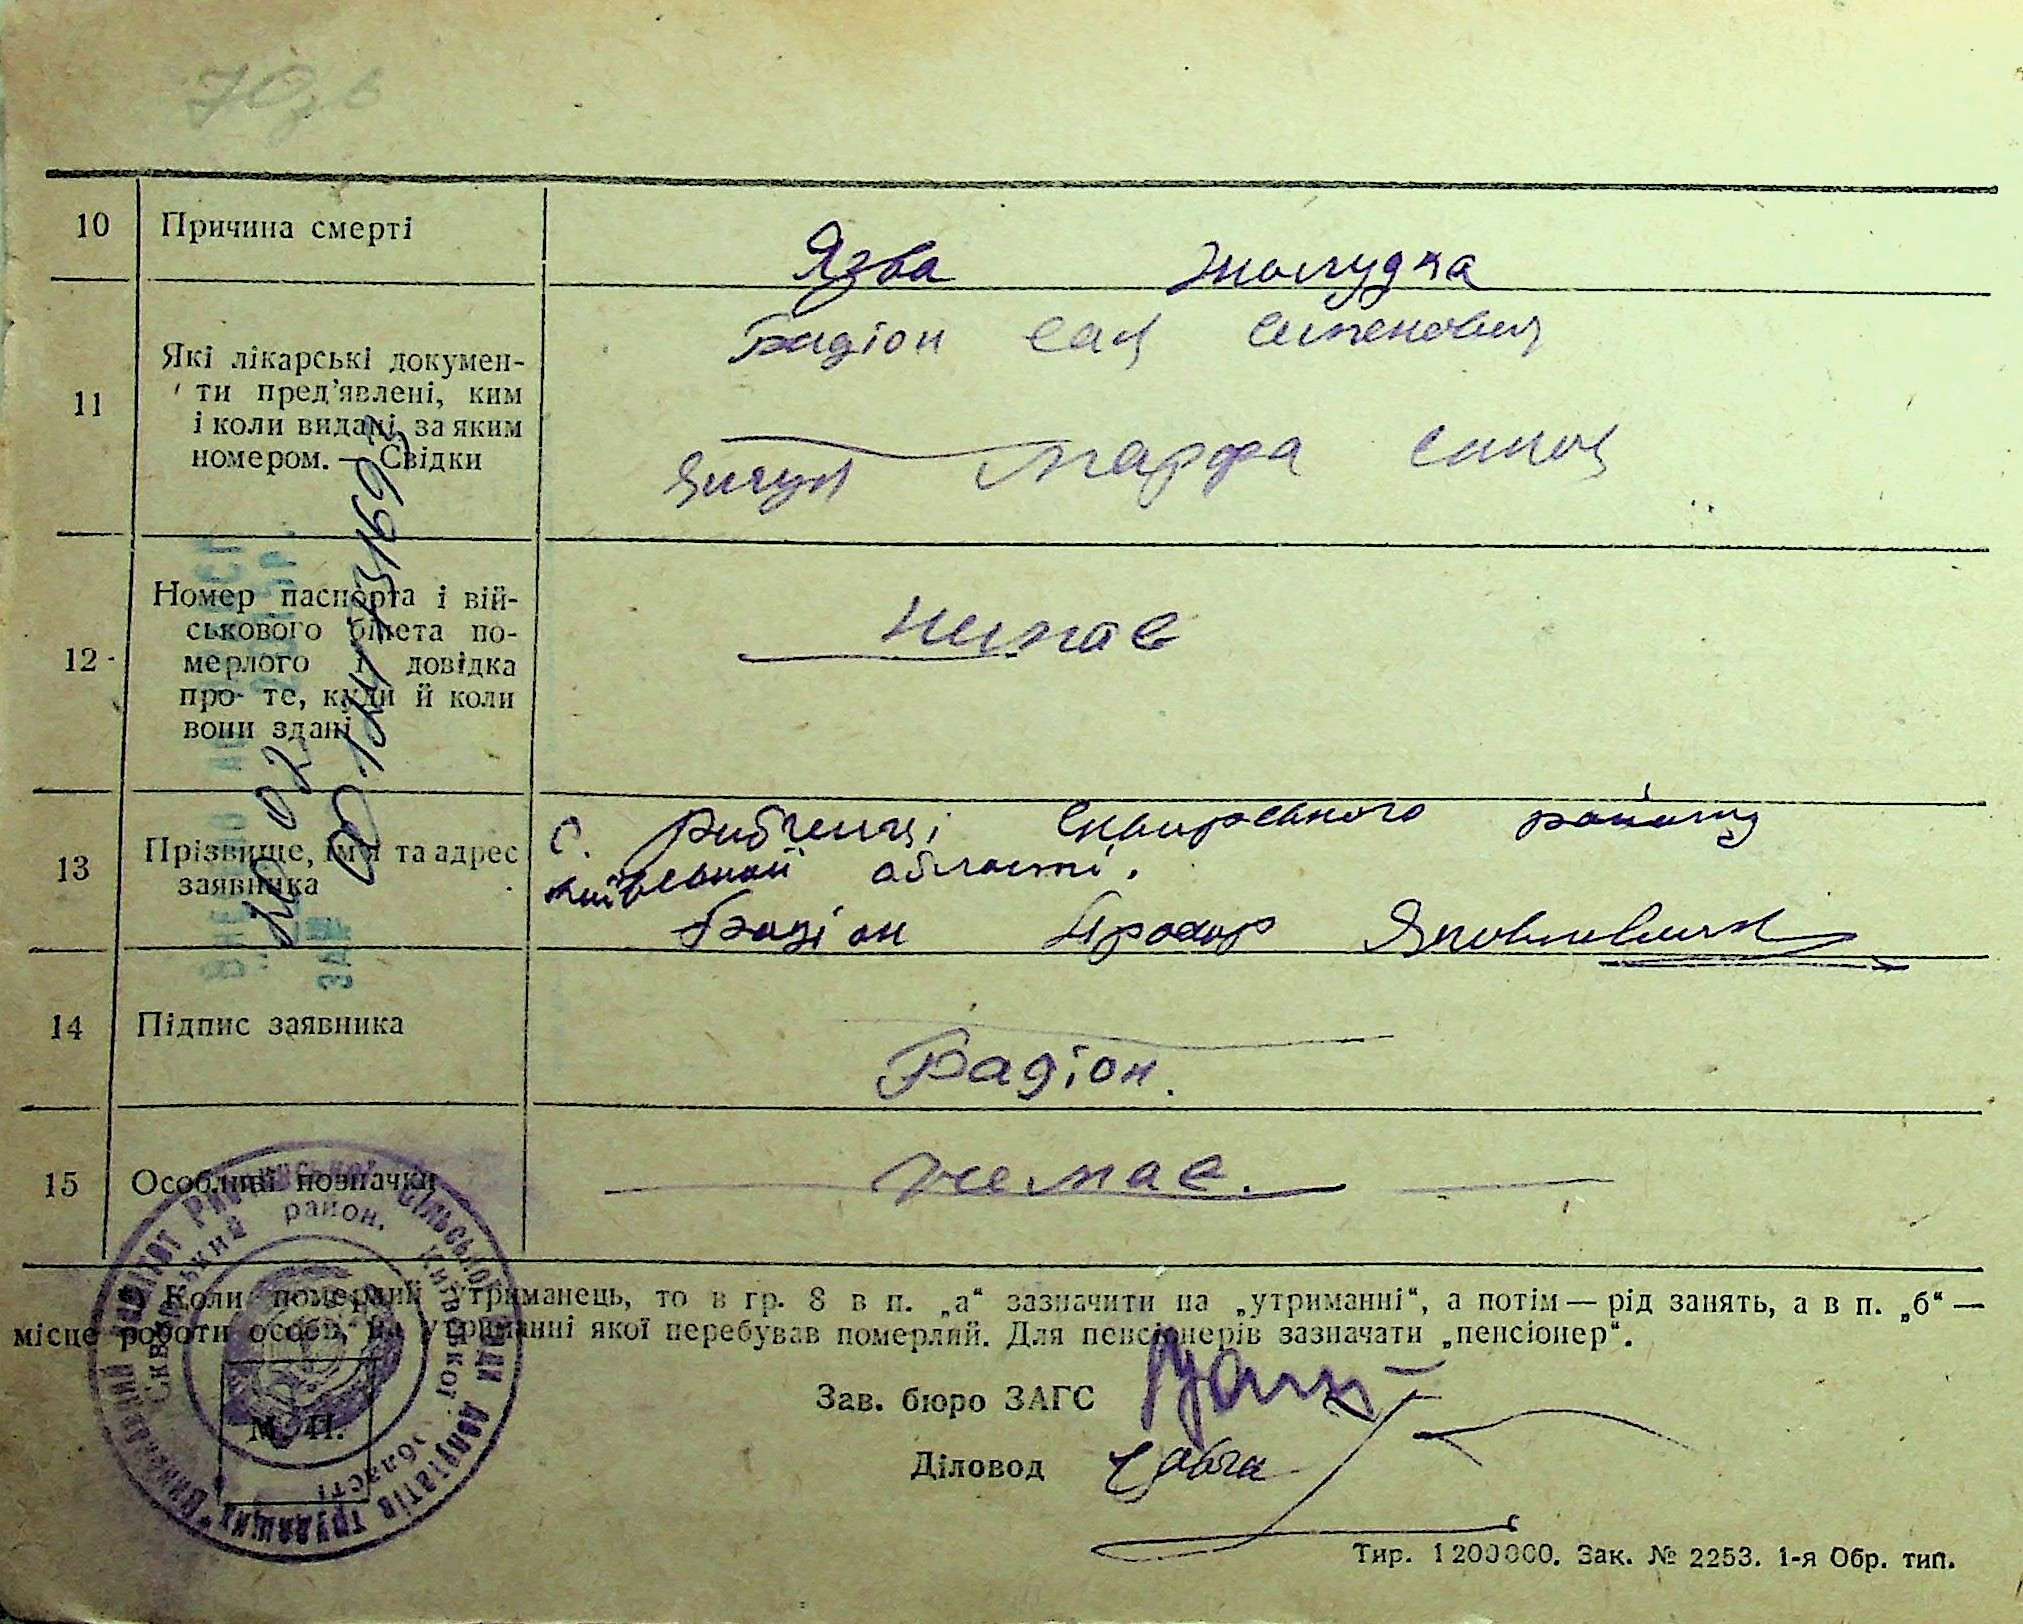 10 Причина смерті
Язва жолудка
11 Які лікарські докумен-
ти пред'явлені, ким
і коли видані, за яким
номером. — Свідки
Радіон
Марфа
12 Номер паспорта і вій-
ськового білета по-
мерлого і довідка
про те, куди й коли
вони здані
немає
13 Прізвище, ім'я та адрес
заявника
с. Рибченці Сквирського району
Київської області.
Радіон Прохор Яковлевич
14 Підпис заявника
Радіон.
15 Особливі позначки
немає.
Коли померлий утриманець, то в гр. 8 в п. „а“ зазначити на „утриманні“, а потім — рід занять, а в п. „б“ —
місце роботи особи, на утриманні якої перебував померлий. Для пенсіонерів зазначати „пенсіонер“.
Зав. бюро ЗАГС
Діловод
М. П.
Виконавчий комітет сільської ради депутатів трудящих
Сквирський район, Київської області
Тир. 1200000. Зак. № 2253. 1-я Обр. тип.